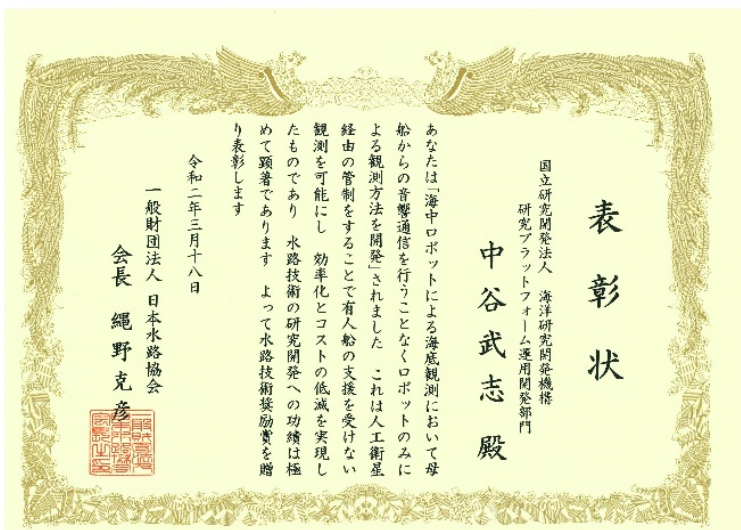 表彰状
国立研究開発法人 海洋研究開発機構
研究プラットフォーム運用開発部門
中谷武志 殿
あなたは「海中ロボットによる海底観測において母
船からの音響通信を行うことなくロボットのみに
よる観測方法を開発」されました これは人工衛星
経由の管制をすることで有人船の支援を受けない
観測を可能にし 効率化とコストの低減を実現し
たものであり 水路技術の研究開発への功績は極
めて顕著であります よって水路技術奨励賞を贈
り表彰します
令和二年三月十八日
一般財団法人 日本水路協会
会長 縄野克彦